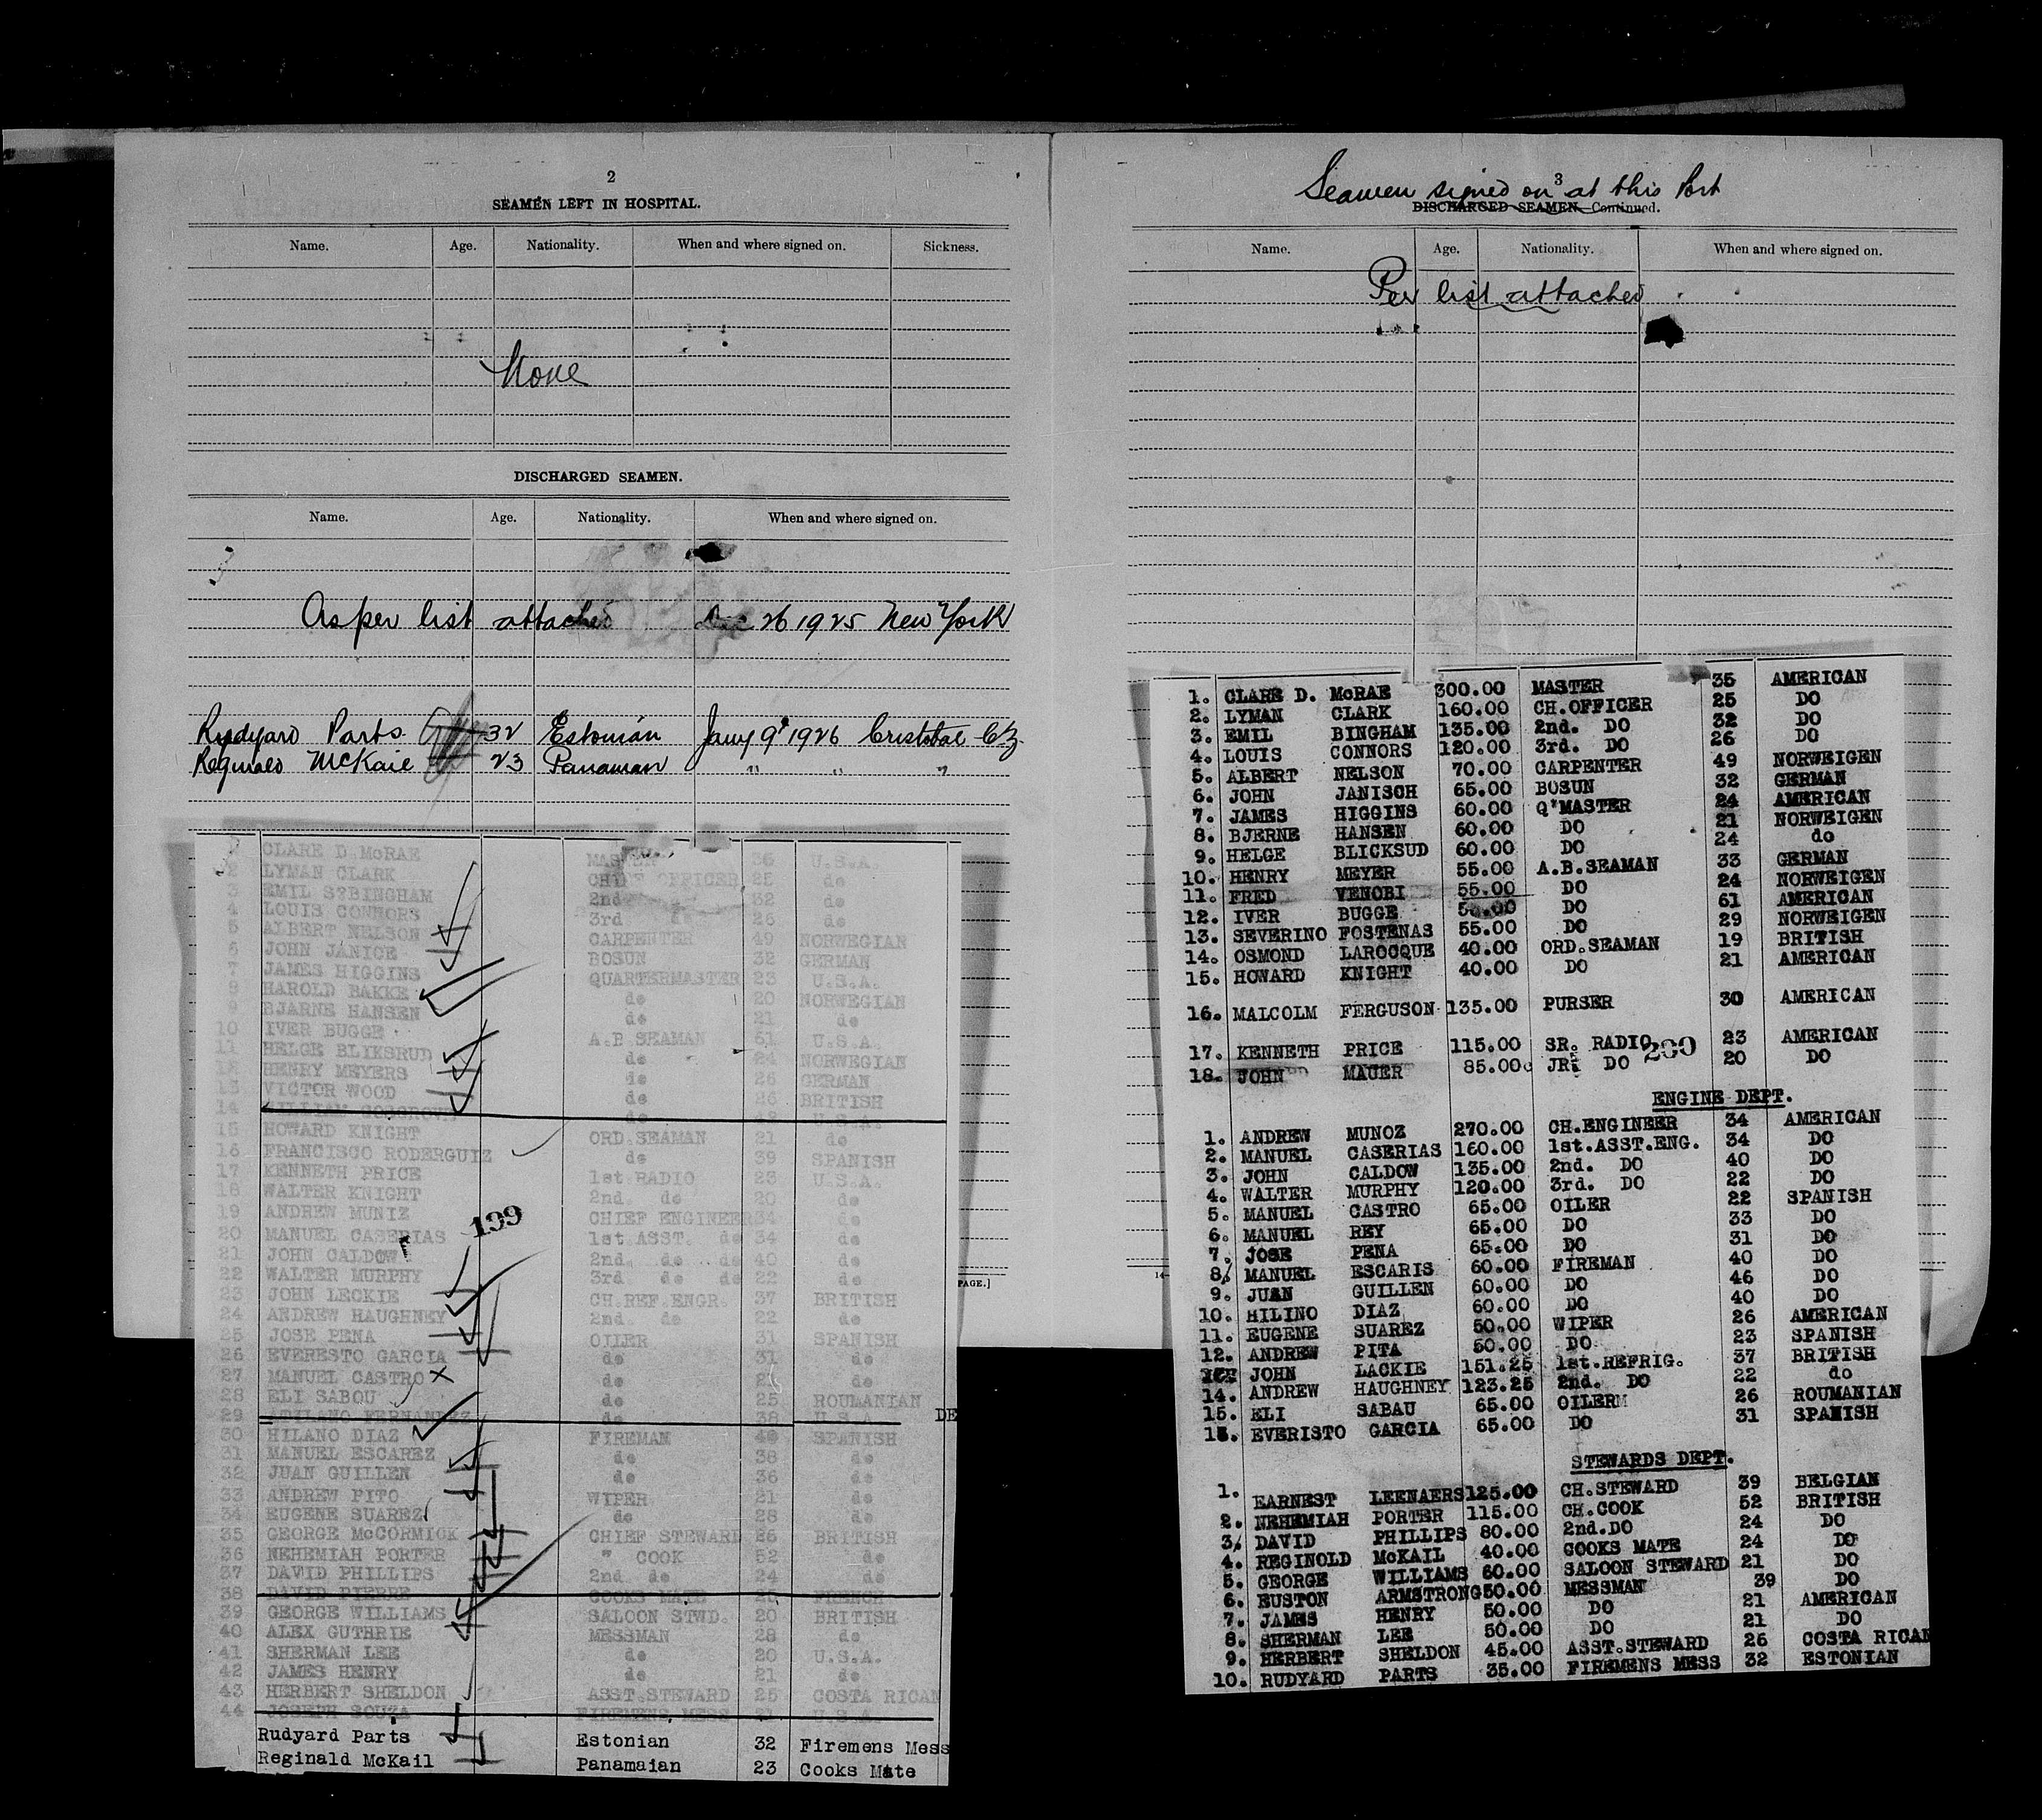 2
SEAMEN LEFT IN HOSPITAL.
Name. Age. Nationality. When and where signed on. Sickness.
None
DISCHARGED SEAMEN.
Name. Age. Nationality. When and where signed on.
As per list attached Dec 26 1925 New York
Rudyard Parts 32 Estonian Jany 9 1926 Cristobal CZ
Reginald McKaie 23 Panaman " " "
1 CLARE D McRAE MASTER 36 U.S.A.
2 LYMAN CLARK CHIEF OFFICER 25 do
3 EMIL S?BINGHAM 2nd 32 do
4 LOUIS CONNORS 3rd 26 do
5 ALBERT NELSON CARPENTER 49 NORWEGIAN
6 JOHN JANICE BOSUN 32 GERMAN
7 JAMES HIGGINS QUARTERMASTER 23 U.S.A.
8 HAROLD BAKKE do 20 NORWEGIAN
9 BJARNE HANSEN do 21 do
10 IVER BUGGE A.B SEAMAN 51 U.S.A.
11 HELGE BLIKSRUD do 24 NORWEGIAN
12 HENRY MEYERS do 26 GERMAN
13 VICTOR WOOD do 26 BRITISH
14 do U.S.A.
15 HOWARD KNIGHT ORD.SEAMAN 21 do
16 FRANCISCO RODERGUIZ do 39 SPANISH
17 KENNETH PRICE 1st RADIO 23 U.S.A.
18 WALTER KNIGHT 2nd. do 20 do
19 ANDREW MUNIZ CHIEF ENGINEER 34 do
199
20 MANUEL CASERIAS 1st ASST. do 34 do
21 JOHN CALDOW 2nd. do do 40 do
22 WALTER MURPHY 3rd do do 22 do
23 JOHN LECKIE CH.REF.ENGR. 37 BRITISH
24 ANDREW HAUGHNEY 2nd. do 22 do
25 JOSE PENA OILER 31 SPANISH
26 EVERESTO GARCIA do 31 do
27 MANUEL CASTRO X do do
28 ELI SABOU do 25 ROUMANIAN
29 FERNANDEZ do 38 U.S.A. DE
30 HILANO DIAZ FIREMAN 40 SPANISH
31 MANUEL ESCAREZ do 38 do
32 JUAN GUILLEN do 36 do
33 ANDREW PITO WIPER 21 do
34 EUGENE SUAREZ do 28 do
35 GEORGE McCORMICK CHIEF STEWARD 26 BRITISH
36 NEHEMIAH PORTER " COOK 52 do
37 DAVID PHILLIPS 2nd do 24 do
38 DAVID PIERRE COOKS MATE 25 FRENCH
39 GEORGE WILLIAMS SALOON STWD. 20 BRITISH
40 ALEX GUTHRIE MESSMAN 28 do
41 SHERMAN LEE do 20 U.S.A.
42 JAMES HENRY do 21 do
43 HERBERT SHELDON ASST.STEWARD 25 COSTA RICAN
44 JOSEPH SOUZA FIREMENS MESS 21 U.S.A.
Rudyard Parts Estonian 32 Firemens Mess
Reginald McKail Panamaian 23 Cooks Mate
PAGE.]
3
Seamen signed on at this Port
DISCHARGED SEAMEN. Continued.
Name. Age. Nationality. When and where signed on.
Per list attached
1. CLARE D. McRAE 300.00 MASTER 35 AMERICAN
2. LYMAN CLARK 160.00 CH.OFFICER 25 DO
3. EMIL BINGHAM 135.00 2nd. DO 32 DO
4. LOUIS CONNORS 120.00 3rd. DO 26 DO
5. ALBERT NELSON 70.00 CARPENTER 49 NORWEIGEN
6. JOHN JANISCH 65.00 BOSUN 32 GERMAN
7. JAMES HIGGINS 60.00 Q'MASTER 24 AMERICAN
8. BJERNE HANSEN 60.00 DO 21 NORWEIGEN
9. HELGE BLICKSUD 60.00 DO 24 do
10. HENRY MEYER 55.00 A.B.SEAMAN 33 GERMAN
11. FRED VENOBI 55.00 DO 24 NORWEIGEN
12. IVER BUGGE DO 61 AMERICAN
13. SEVERINO FOSTENAS 55.00 DO 29 NORWEIGEN
14. OSMOND LAROCQUE 40.00 ORD.SEAMAN 19 BRITISH
15. HOWARD KNIGHT 40.00 DO 21 AMERICAN
16. MALCOLM FERGUSON 135.00 PURSER 30 AMERICAN
17. KENNETH PRICE 115.00 SR. RADIO 23 AMERICAN
200
18. JOHN MAUER 85.00 JR. DO 20 DO
ENGINE DEPT.
1. ANDREW MUNOZ 270.00 CH.ENGINEER 34 AMERICAN
2. MANUEL CASERIAS 160.00 1st.ASST.ENG. 34 DO
3. JOHN CALDOW 135.00 2nd. DO 40 DO
4. WALTER MURPHY 120.00 3rd. DO 22 DO
5. MANUEL CASTRO 65.00 OILER 22 SPANISH
6. MANUEL REY 65.00 DO 33 DO
7. JOSE PENA 65.00 DO 31 DO
8. MANUEL ESCARIS 60.00 FIREMAN 40 DO
9. JUAN GUILLEN 60.00 DO 46 DO
10. HILINO DIAZ 60.00 DO 40 DO
11. EUGENE SUAREZ 50.00 WIPER 26 AMERICAN
12. ANDREW PITA 50.00 DO 23 SPANISH
JOHN LACKIE 151.25 1st.REFRIG. 37 BRITISH
14. ANDREW HAUGHNEY 123.25 2nd. DO 22 do
15. ELI SABAU 65.00 OILER 26 ROUMANIAN
15. EVERISTO GARCIA 65.00 DO 31 SPANISH
STEWARDS DEPT.
1. EARNEST LEENAERS 125.00 CH.STEWARD 39 BELGIAN
2. NEHEMIAH PORTER 115.00 CH.COOK 52 BRITISH
3. DAVID PHILLIPS 80.00 2nd.DO 24 DO
4. REGINOLD McKAIL 40.00 COOKS MATE 24 DO
5. GEORGE WILLIAMS 60.00 SALOON STEWARD 21 DO
6. EUSTON ARMSTRONG 50.00 MESSMAN 39 DO
7. JAMES HENRY 50.00 DO 21 AMERICAN
8. SHERMAN LEE 50.00 DO 21 DO
9. HERBERT SHELDON 45.00 ASST.STEWARD 26 COSTA RICAN
10. RUDYARD PARTS 35.00 FIREMENS MESS 32 ESTONIAN